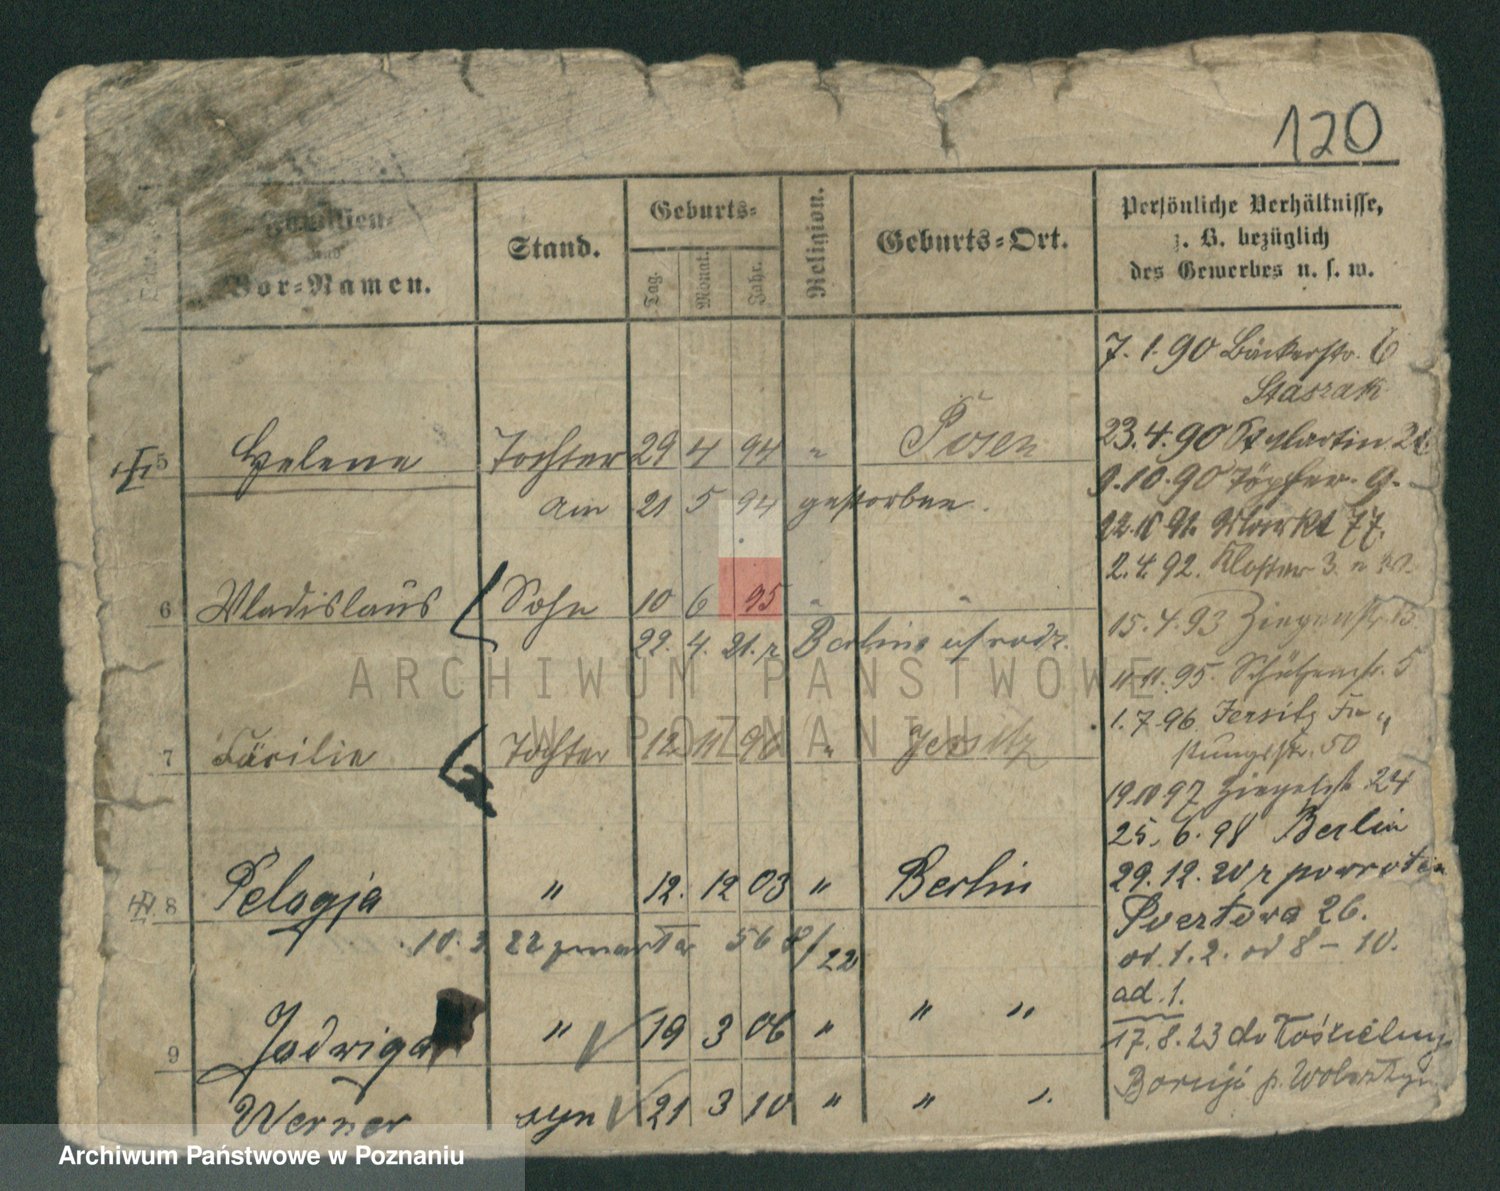 120
Familien-
und
Vor-Namen.
Stand.
Geburts-
Tag.
Monat.
Jahr.
Religion.
Geburts-Ort.
Persönliche Verhältnisse,
z. B. bezüglich
des Gewerbes u. s. w.
7. 1. 90 Bäckerstr. 6
Staszak
5 Helene Tochter 29 4 94 " Posen
23. 4. 90 St Martin
am 21 5 94 gestorben.
9. 10. 90 Töpfer-g.
92. Markt 77.
2. 4. 92. Kloster 3.
6 Wladislaus Sohn 10 6 95 " "
15. 4. 93 Ziegenstr.
22. 4. 21. z Berlina
95. Schützenstr. 5
7 Tochter 12 11 96 " Jersitz
1. 7. 96 Jersitz
str. 50
19 10 97 24
25. 6. 98 Berlin
8 Pelagja " 12. 12 03 " Berlin
29. 12. z powrotem
26.
10. 3 22 zmarła 56 8/22
od 1. 2. od 8 – 10.
ad. 1.
9 Jadwiga " 19 3 06 " " "
17. 8. 23 do
Werner syn 21 3 10 " " "
p. Wolsztyn
ARCHIWUM PAŃSTWOWE
W POZNANIU
Archiwum Państwowe w Poznaniu